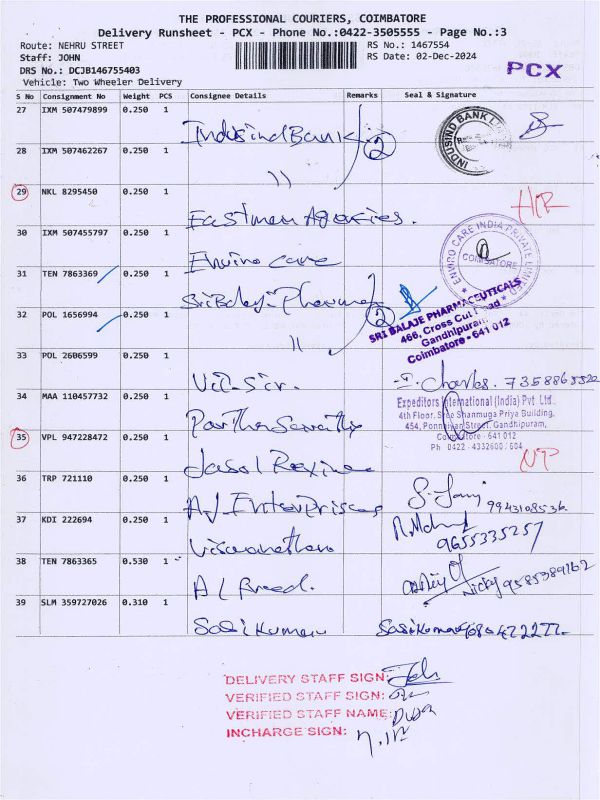 THE PROFESSIONAL COURIERS, COIMBATORE
Delivery Runsheet - PCX - Phone No.:0422-3505555 - Page No.:3
Route: NEHRU STREET RS No.: 1467554
Staff: JOHN RS Date: 02-Dec-2024
DRS No.: DCJB146755403 PCX
Vehicle: Two Wheeler Delivery
S No Consignment No Weight PCS Consignee Details Remarks Seal & Signature
27 IXM 507479899 0.250 1
Indusind Bank 2 INDUSIND BANK
28 IXM 507462267 0.250 1
))
29 NKL 8295450 0.250 1
Eastman Agencies.
30 IXM 507455797 0.250 1
Enviro care ENVIRO CARE INDIA PRIVATE LIMITED COIMBATORE
31 TEN 7863369 0.250 1
Sri Balaji Pharma 2 SRI BALAJE PHARMACEUTICALS
466, Cross Cut Road
Gandhipuram
Coimbatore - 641 012
32 POL 1656994 0.250 1
))
33 POL 2606599 0.250 1
Charles.
34 MAA 110457732 0.250 1
Expeditors International (India) Pvt Ltd.
4th Floor, Sree Shanmuga Priya Building,
454, Ponnaiyan Street, Gandhipuram,
Coimbatore - 641 012
Ph 0422 - 4332600 / 604
Partha Sarathy
35 VPL 947228472 0.250 1
36 TRP 721110 0.250 1
AJ Enterprises 9943108536
37 KDI 222694 0.250 1
Viswanathan 9655335257
38 TEN 7863365 0.530 1
9585389162
39 SLM 359727026 0.310 1
Sasikumar Sasikumar
DELIVERY STAFF SIGN:
VERIFIED STAFF SIGN:
VERIFIED STAFF NAME:
INCHARGE SIGN: